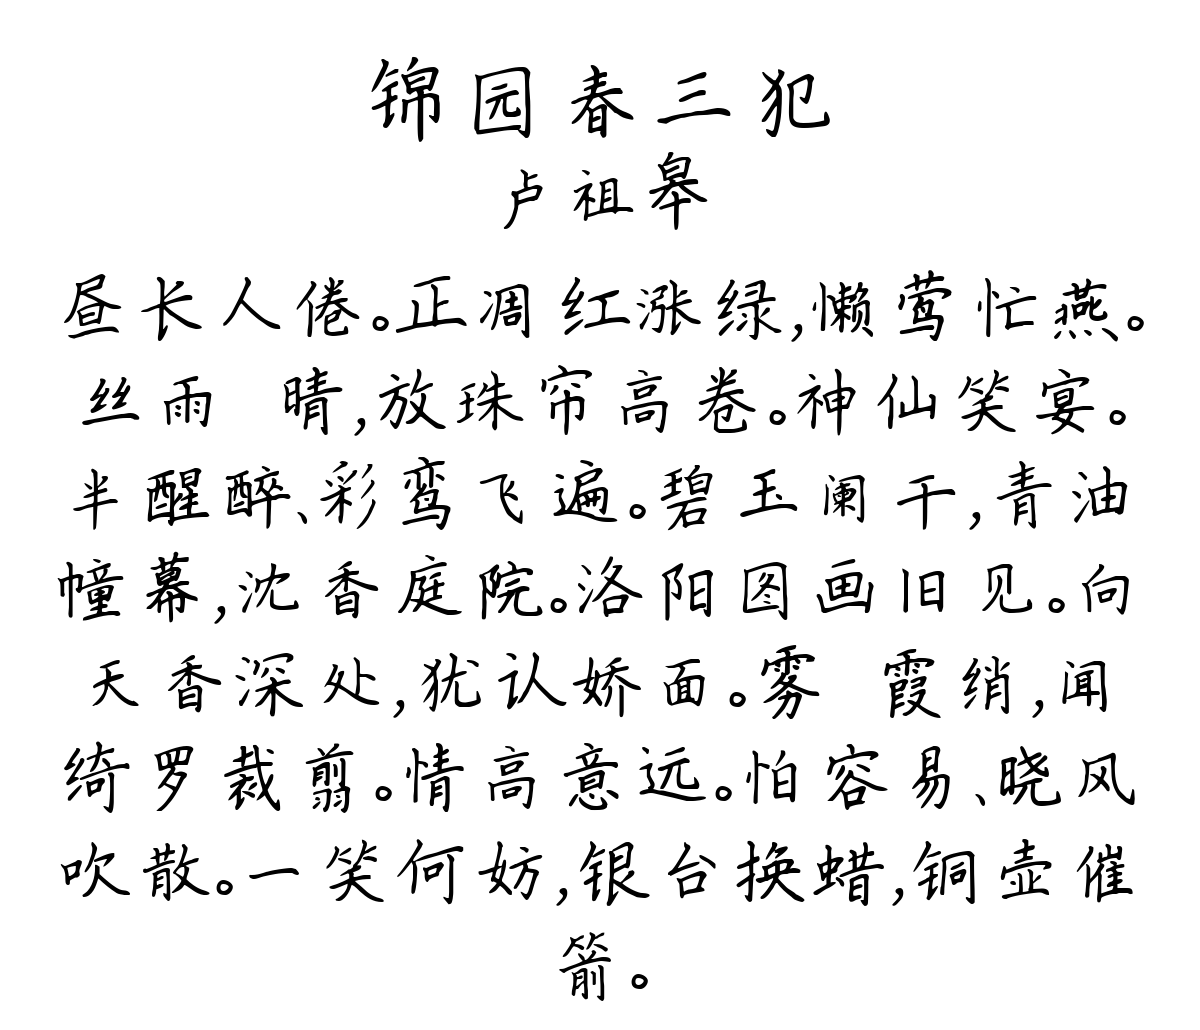 锦园春三犯
卢祖皋
昼长人倦。正凋红涨绿,懒莺忙燕。
丝雨 晴,放珠帘高卷。神仙笑宴。
半醒醉、彩鸾飞遍。碧玉阑干,青油
幢幕,沈香庭院。洛阳图画旧见。向
天香深处,犹认娇面。雾 霞绡,闻
绮罗裁剪。情高意远。怕容易、晓风
吹散。一笑何妨,银台换蜡,铜壶催
箭。